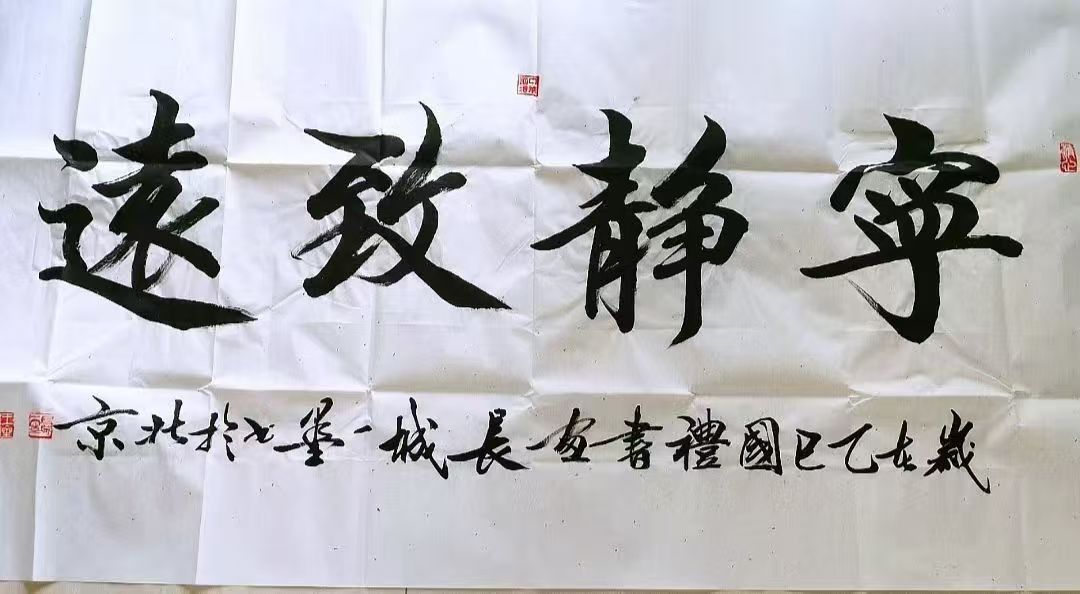 寧靜致遠
歲在乙巳國禮書画長城一墨書於北京